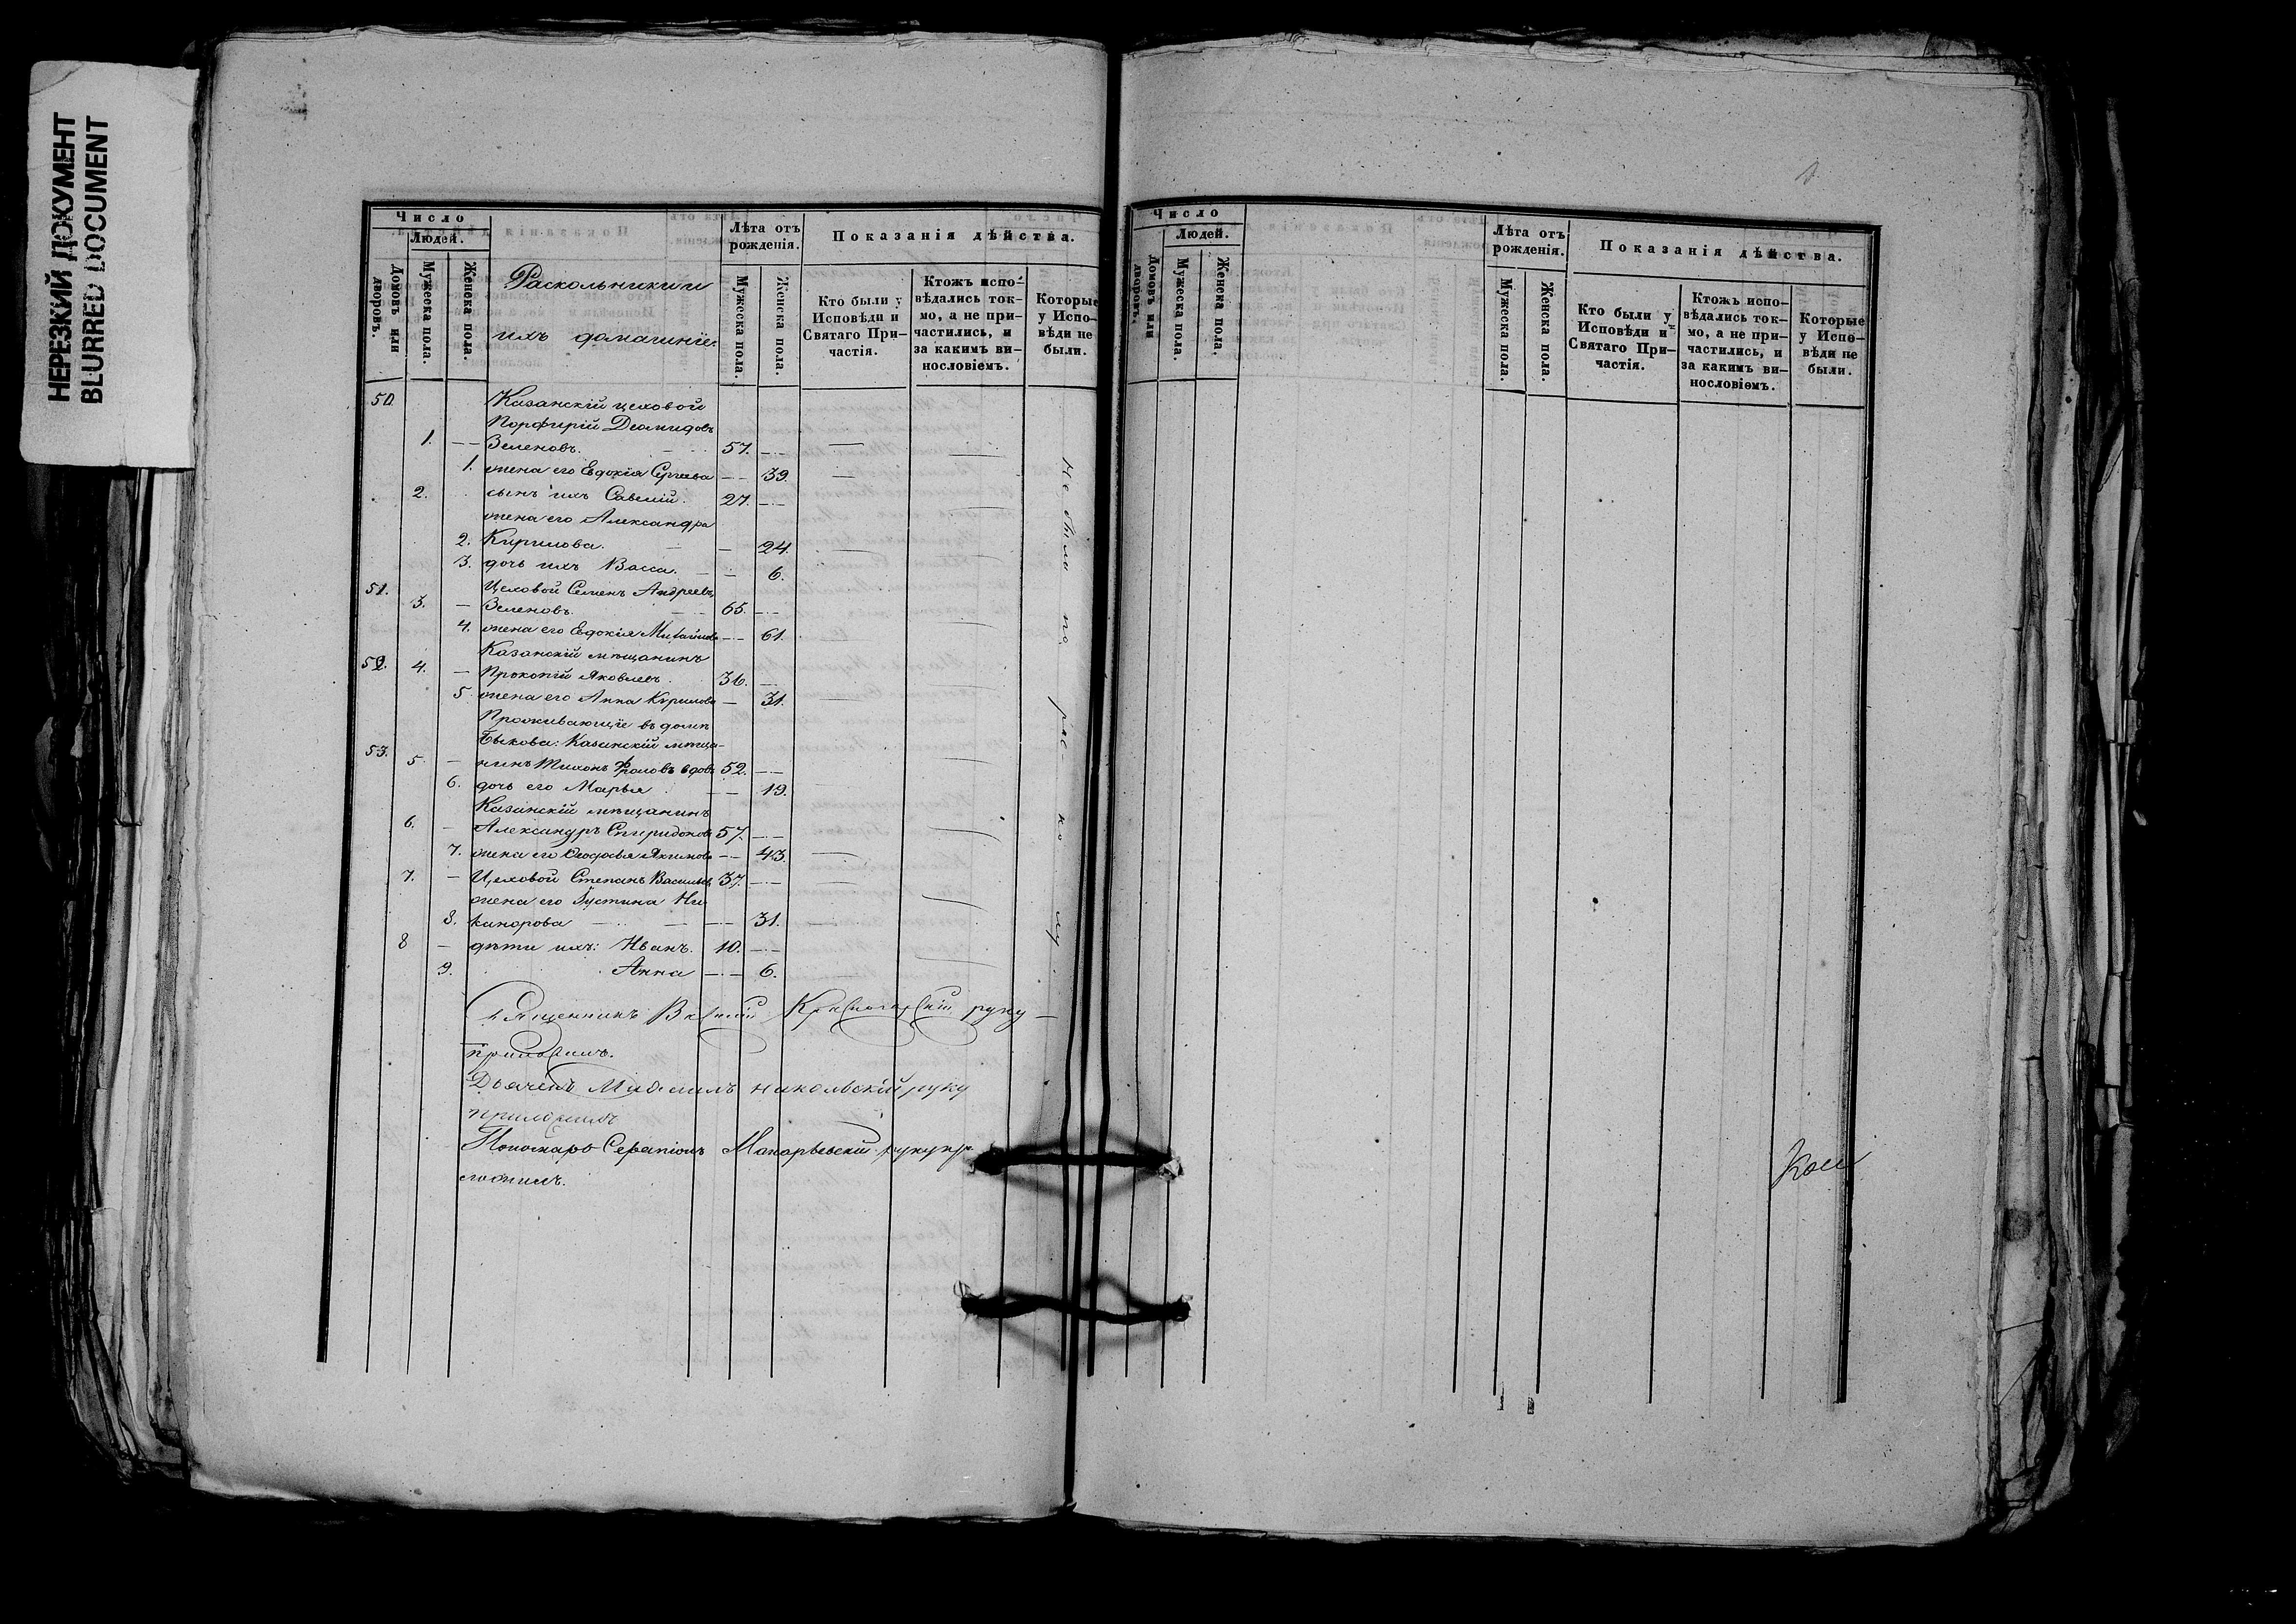 НЕРЕЗКИЙ ДОКУМЕНТ
BLURRED DOCUMENT
Число
Людей.
Домовъ или дворовъ.
Мужеска пола.
Женска пола.
Раскольники и
ихъ домашніе.
Лѣта отъ рожденія.
Мужеска пола.
Женска пола.
Показанія дѣйства.
Кто были у Исповѣди и Святаго Причастія.
Ктожъ испо-
вѣдались ток-
мо, а не при-
частились, и
за какимъ ви-
нословіемъ.
Которые
у Испо-
вѣди не
были.
50. Казанскій цеховой
Порфирій Деомидовъ
1. — Зеленовъ. 57. —
1. жена его Евдокія Сергѣева — 39.
2. сынъ ихъ Савелій. 27. —
жена его Александра
2. Кирилова. — 24.
3. дочь ихъ Васса. — 6.
51. Цеховой Семенъ Андреевъ
3. — Зеленовъ. 65. —
4. жена его Евдокія Михайлова — 61.
Казанскій мѣщанинъ
52. 4. — Прокопій Яковлевъ. 36. —
5. жена его Анна Кирилова — 31.
Проживающіе въ домѣ
Быкова: Казанскій мѣща-
53. 5. — нинъ Тихонъ Фроловъ вдовъ 52. —
6. дочь его Марья. — 19.
Казанскій мѣщанинъ
6. — Александръ Спиридоновъ 57. —
7. жена его Акимова — 43.
7. — Цеховой Степанъ Васильевъ 37. —
жена его Іустина Ни
8. канорова — 31.
8 — дѣти ихъ: Иванъ. 10. —
9. Анна — 6.
Не были по расколу
Священникъ Василій Красногорскій руку
приложилъ.
Дьячекъ Михаилъ Никольскій руку
приложилъ
Пономарь Серапіонъ Макарьевскій руку при
ложилъ.
Число
Людей.
Домовъ или дворовъ.
Мужеска пола.
Женска пола.
Лѣта отъ рожденія.
Мужеска пола.
Женска пола.
Показанія дѣйства.
Кто были у
Исповѣди и
Святаго При-
частія.
Ктожъ испо-
вѣдались ток-
мо, а не при-
частились, и
за какимъ ви-
нословіемъ.
Которые
у Испо-
вѣди не
были.